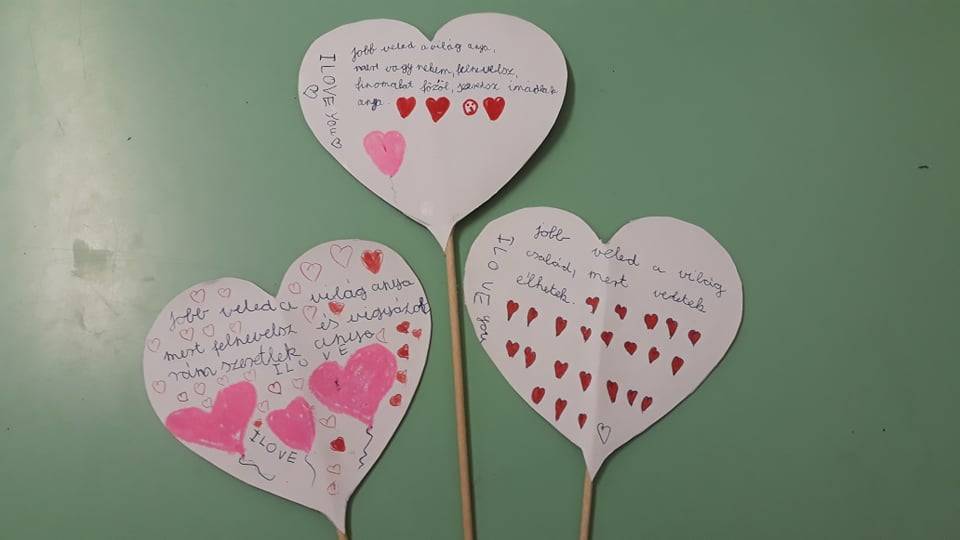 Jobb veled a világ anya,
mert vagy nekem, felnevelsz,
finomakat főzöl, szeretsz imádlak
anya.
I LOVE You
Jobb veled a világ anya
mert felnevelsz és vigyázol
rám szeretlek anya
I LO VE
I LOVE
Jobb veled a világ
család, mert veletek
élhetek.
I LOVE You